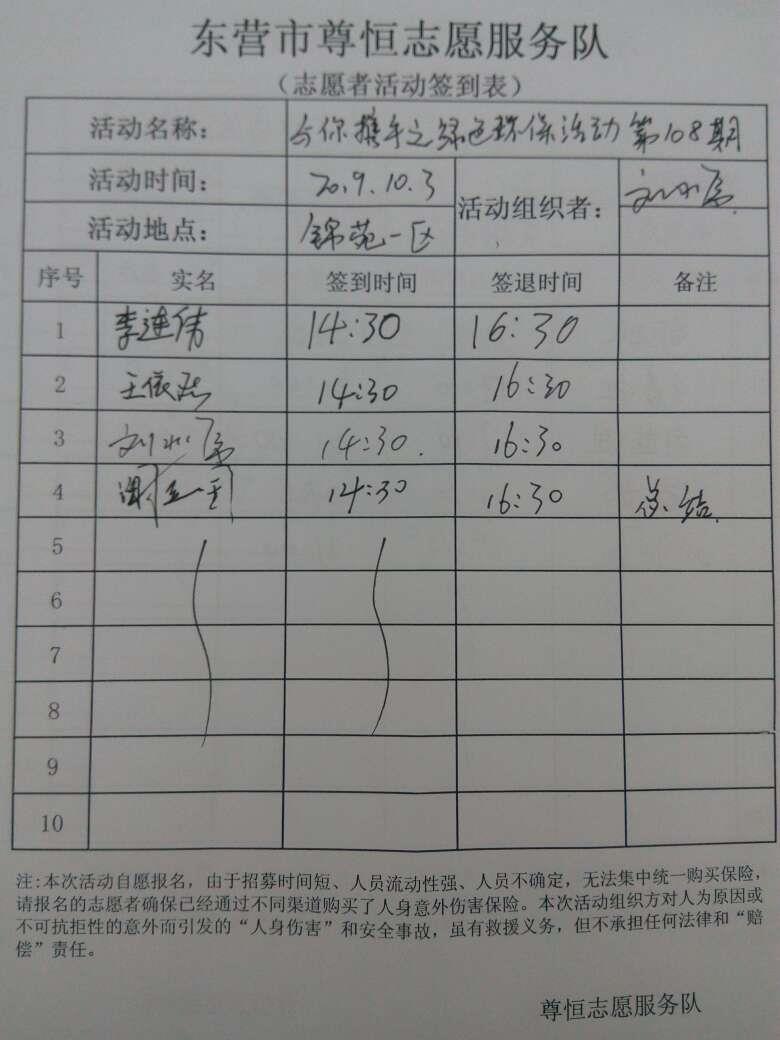 东营市尊恒志愿服务队
（志愿者活动签到表）
活动名称： 与你携手之绿色环保活动第108期
活动时间： 2019.10.3 活动组织者： 刘水
活动地点： 锦苑一区
序号 实名 签到时间 签退时间 备注
1 李连伟 14:30 16:30
2 王依 14:30 16:30
3 刘水 14:30. 16:30
4 谢 14:30 16:30 总结
5
6
7
8
9
10
注:本次活动自愿报名，由于招募时间短、人员流动性强、人员不确定，无法集中统一购买保险，
请报名的志愿者确保已经通过不同渠道购买了人身意外伤害保险。本次活动组织方对人为原因或
不可抗拒性的意外而引发的“人身伤害”和安全事故，虽有救援义务，但不承担任何法律和“赔
偿”责任。
尊恒志愿服务队